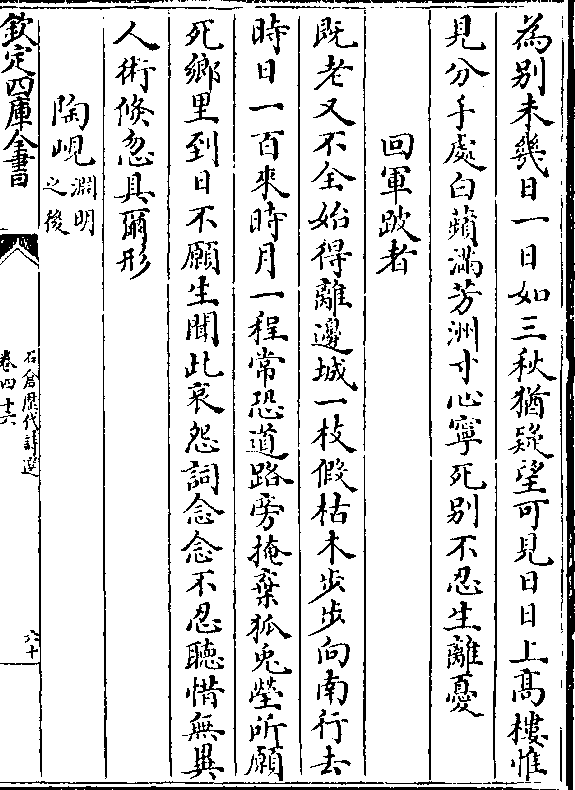 為别未幾日一日如三秋猶疑望可見日日上髙樓惟
見分手處白蘋滿芳洲寸心寧死别不忍生離憂
回軍跛者
既老又不全始得離邊城一枝假枯木步步向南行去
時日一百來時月一程常恐道路旁掩棄狐兎塋所願
死鄉里到日不願生聞此哀怨詞念念不忍聽惜無異
人術倐忽具爾形
陶峴淵明之後
欽定四庫全書
石倉歷代詩選
卷四十六
六十